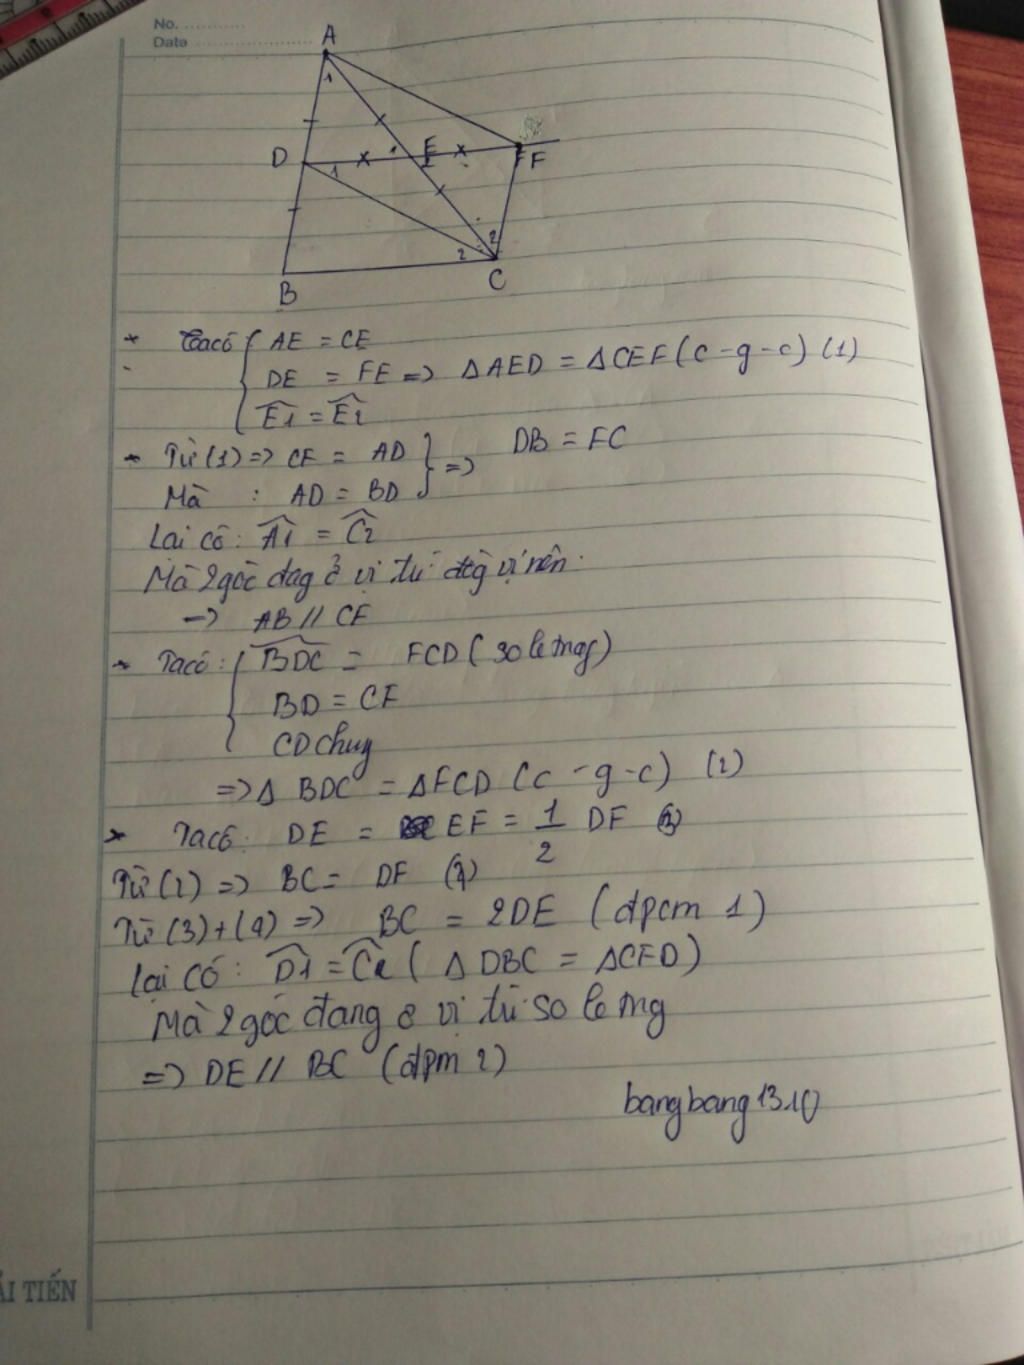 No. ............
Date ....................
A
1
D
1
1
E
2
F
2
2
B
C
* Ta có { AE = CE
DE = FE => ΔAED = ΔCEF (c-g-c) (1)
Ê1 = Ê2
* Từ (1) => CF = AD } => DB = FC
Mà : AD = BD
Lại có: Â1 = Ĉ2
Mà 2 góc đag ở vị trí đồg vị nên
=> AB // CF
* Ta có: { BDC = FCD (so le trog)
BD = CF
CD chug
=> Δ BDC = ΔFCD (c-g-c) (2)
* Ta có: DE = EF = 1/2 DF (3)
Từ (2) => BC = DF (4)
Từ (3)+(4) => BC = 2DE (đpcm 1)
Lại có: D1 = C2 (Δ DBC = ΔCFD)
Mà 2 góc đang ở vị trí so le trog
=> DE // BC (đpm 2)
bangbang1310
ẢI TIẾN